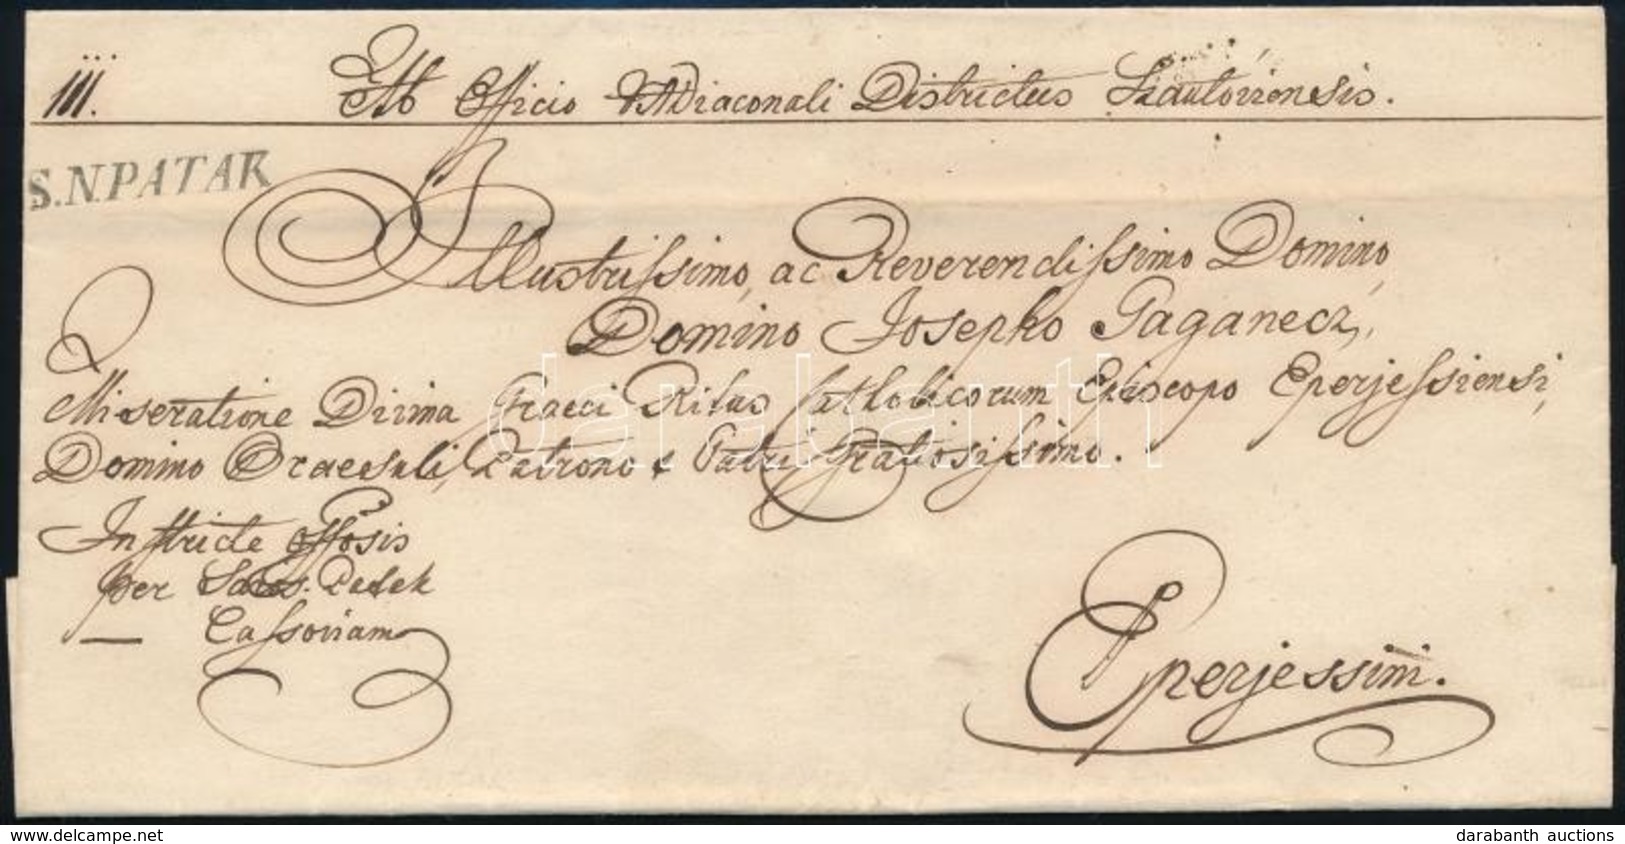 III.
Ab Officio VADiaconali Districtus Szántóviensis.
S.N.PATAK
Illustrissimo, ac Reverendissimo Domino,
Domino Josepho Gaganecz,
Miseratione Divina Graeci Ritus Catholicorum Episcopo Eperjessiensi,
Domino Praesuli, Patrono & Patri Gratiosissimo.
In stricte offosis
per Patak
Cassoviam
Eperjessini.
darabanth
www.delcampe.net
darabanth auctions